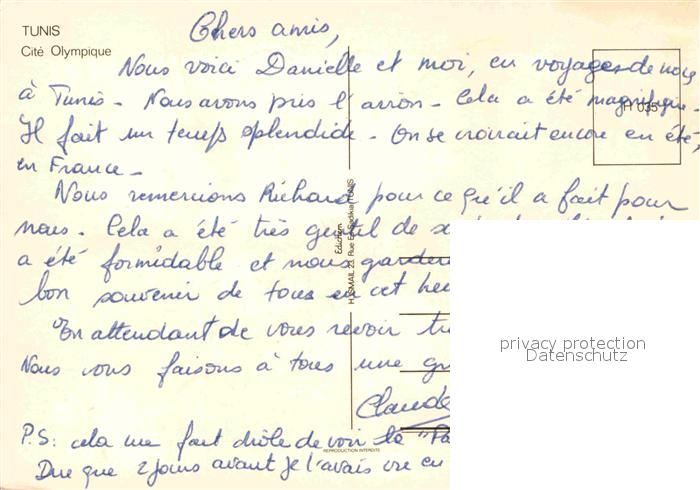 TUNIS
Cité Olympique
Chers amis,
Nous voici Danielle et moi, en voyages de noces
à Tunis - Nous avons pris l'avion - Cela a été magnifique.
Il fait un temps splendide - On se croirait encore en été,
en France -
Nous remercions Richard pour ce qu'il a fait pour
nous. Cela a été très gentil de
a été formidable et nous
bon souvenir de tous en cet
En attendant de vous revoir
Nous vous faisons à tous une
Claude
P.S: cela me fait drôle de voir la "
Dire que 2 jours avant je l'avais vue en
H 035
Edition
H. ISMAIL 23, Rue Es-Sadikia TUNIS
REPRODUCTION INTERDITE
privacy protection
Datenschutz